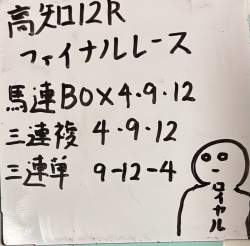 高知12R
ファイナルレース
馬連BOX4.9.12
三連複 4.9.12
三連単 9-12-4
ロイヤル